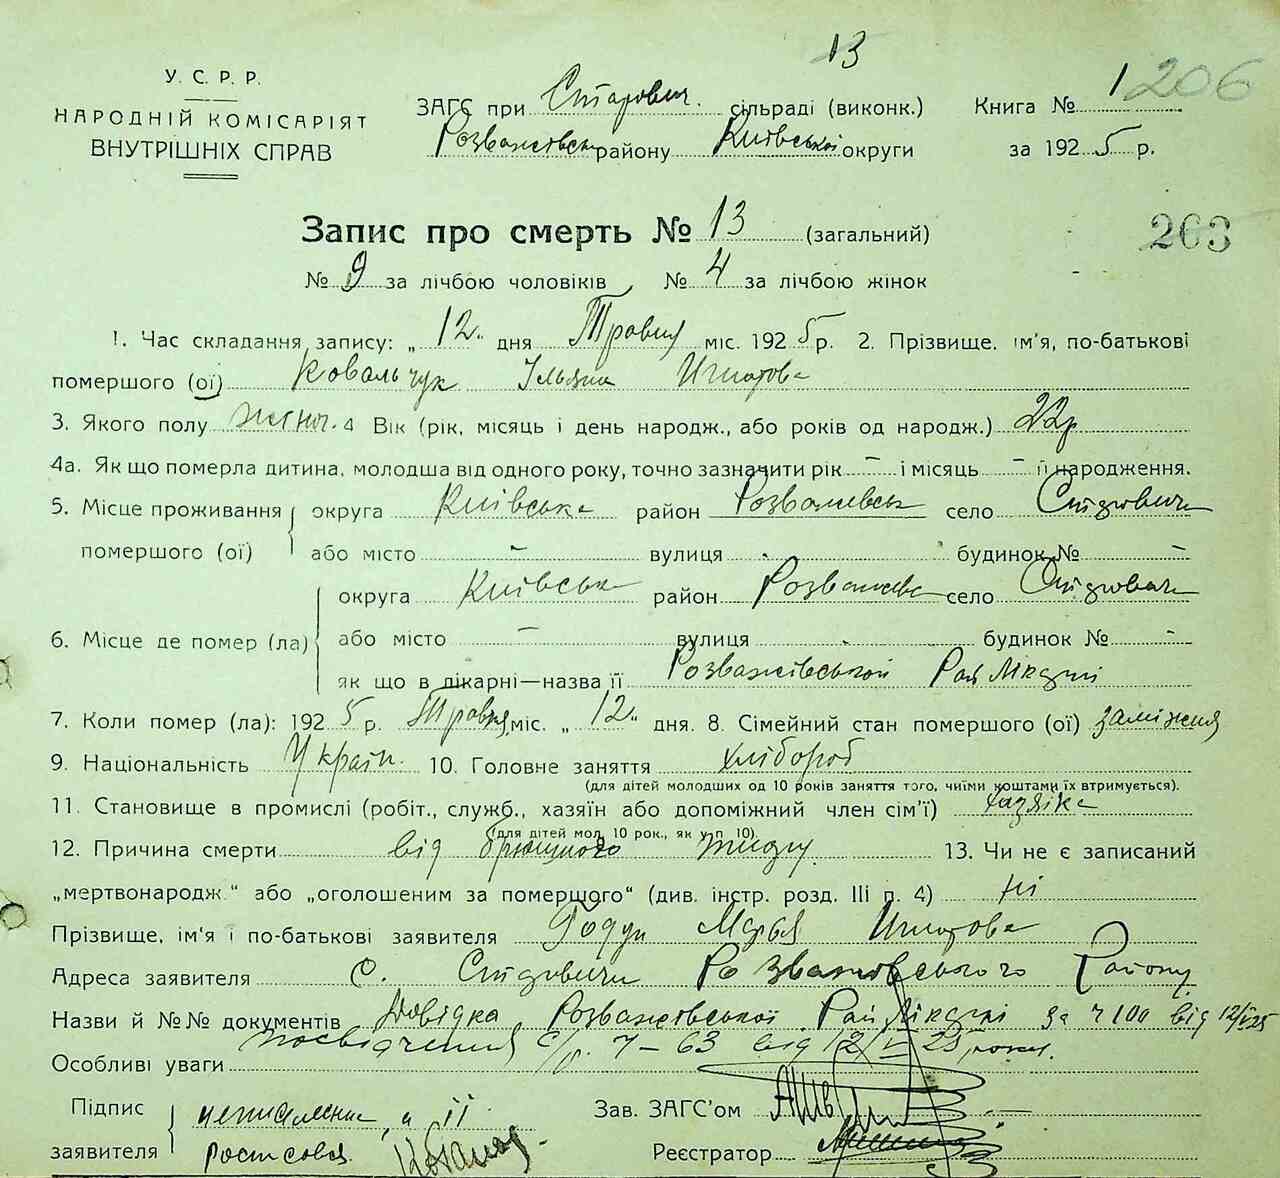 13
У. С. Р. Р.
НАРОДНІЙ КОМІСАРІЯТ
ВНУТРІШНІХ СПРАВ
ЗАГС при Старович. сільраді (виконк.)
Розважівськ району Київської округи
Книга № 1 206
за 1925 р.
Запис про смерть № 13 (загальний)
263
№ 9 за лічбою чоловіків № 4 за лічбою жінок
1. Час складання запису: „12" дня Травня міс. 1925 р. 2. Прізвище, ім'я, по-батькові
помершого (ої) Ковальчук Ульяна Игнатова
3. Якого полу жіноч. 4 Вік (рік, місяць і день народж., або років од народж.) 22р
4а. Як що померла дитина, молодша від одного року, точно зазначити рік – і місяць – її народження.
5. Місце проживання округа Київська район Розважевськ село Старовичи
помершого (ої) або місто – вулиця будинок № –
6. Місце де помер (ла) округа Київськ район Розважевськ село Старовичи
або місто – вулиця будинок № –
як що в лікарні—назва її Розважівської Рай Лікарні
7. Коли помер (ла): 1925 р. Травня міс. „12" дня. 8. Сімейний стан помершого (ої) заміжня
9. Національність Україн. 10. Головне заняття хлібороб
(для дітей молодших од 10 років заняття того, чиїми коштами їх втримується).
11. Становище в промислі (робіт., служб., хазяїн або допоміжний член сім'ї) хазяйка
(для дітей мол. 10 рок., як у п. 10).
12. Причина смерти від брюшного тифу. 13. Чи не є записаний
„мертвонародж." або „оголошеним за помершого" (див. інстр. розд. III п. 4) ні
Прізвище, ім'я і по-батькові заявителя Марья Игнатова
Адреса заявителя С. Старовичи Розважівського Району
Назви й №№ документів Довідка Розважівської Рай Лікарні за ч 100 від 12/V 25
посвідчення с/р. ч – 63 від 12/V – 25 року.
Особливі уваги
Підпис заявителя неписьменна, а її
росписовся
Зав. ЗАГС'ом
Реєстратор